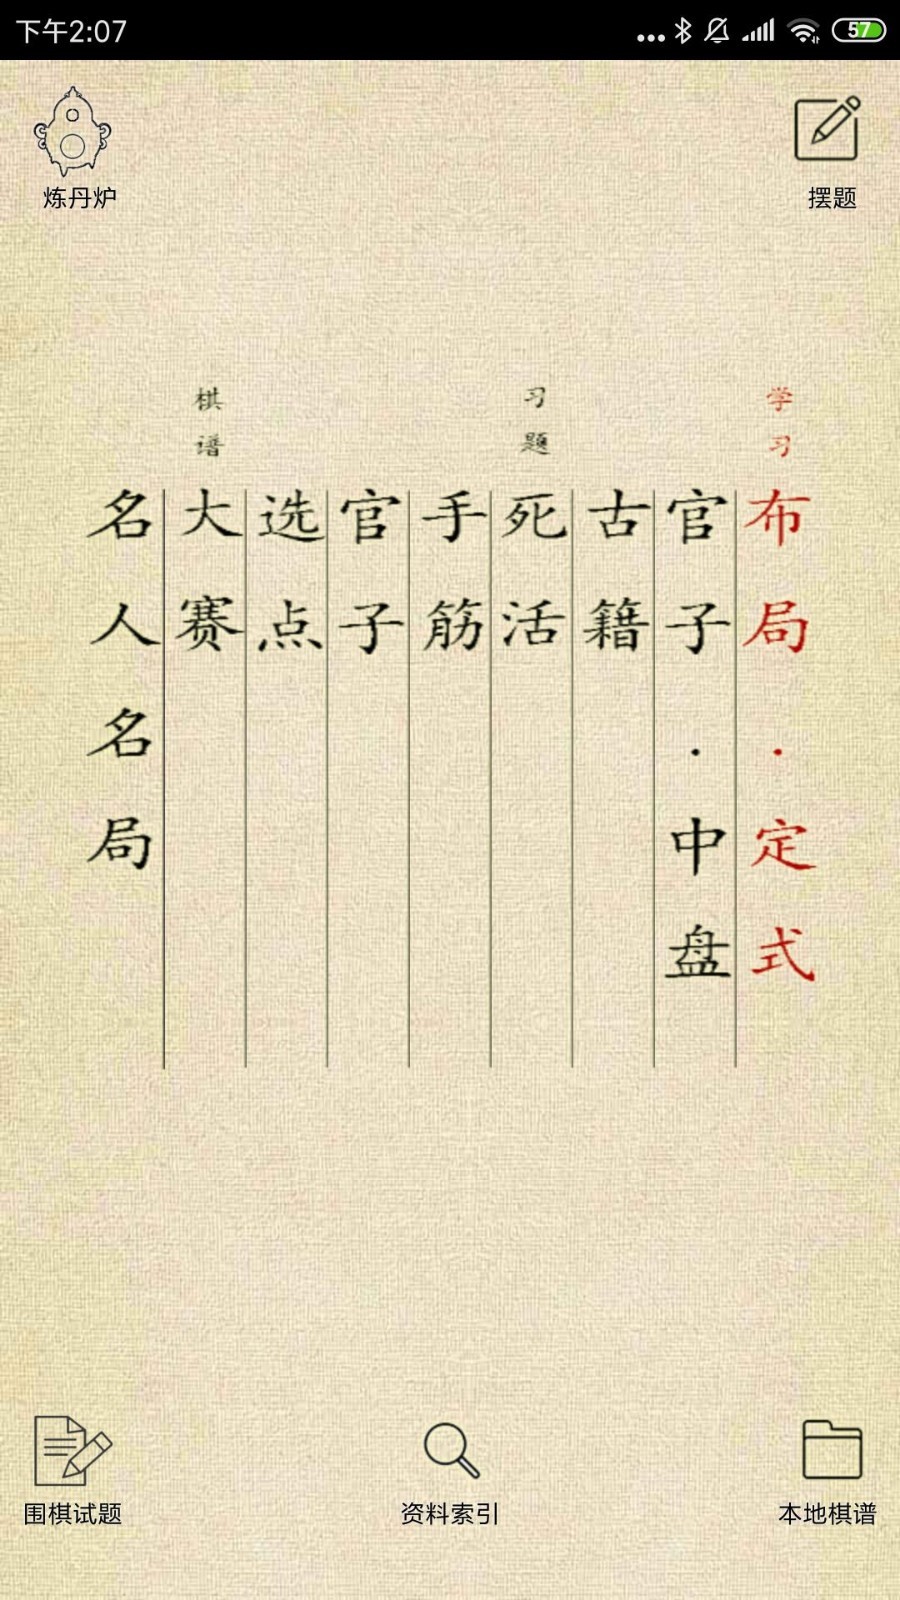 下午2:07
57
炼丹炉
摆题
学习
布局·定式
官子·中盘
习题
古籍
死活
手筋
官子
选点
棋谱
大赛
名人名局
围棋试题
资料索引
本地棋谱